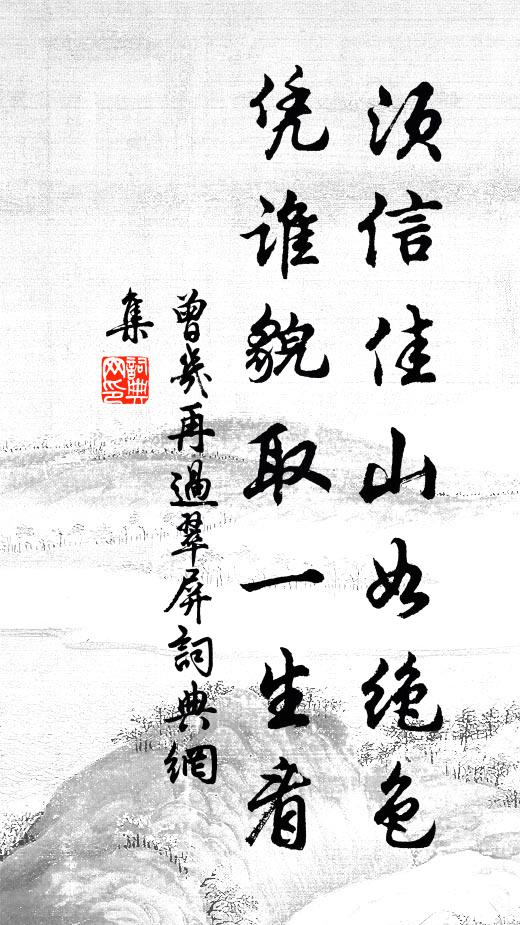 须信佳山如绝色
凭谁貌取一生看
曾几再過翠屏詞典網
集
詞典
网印